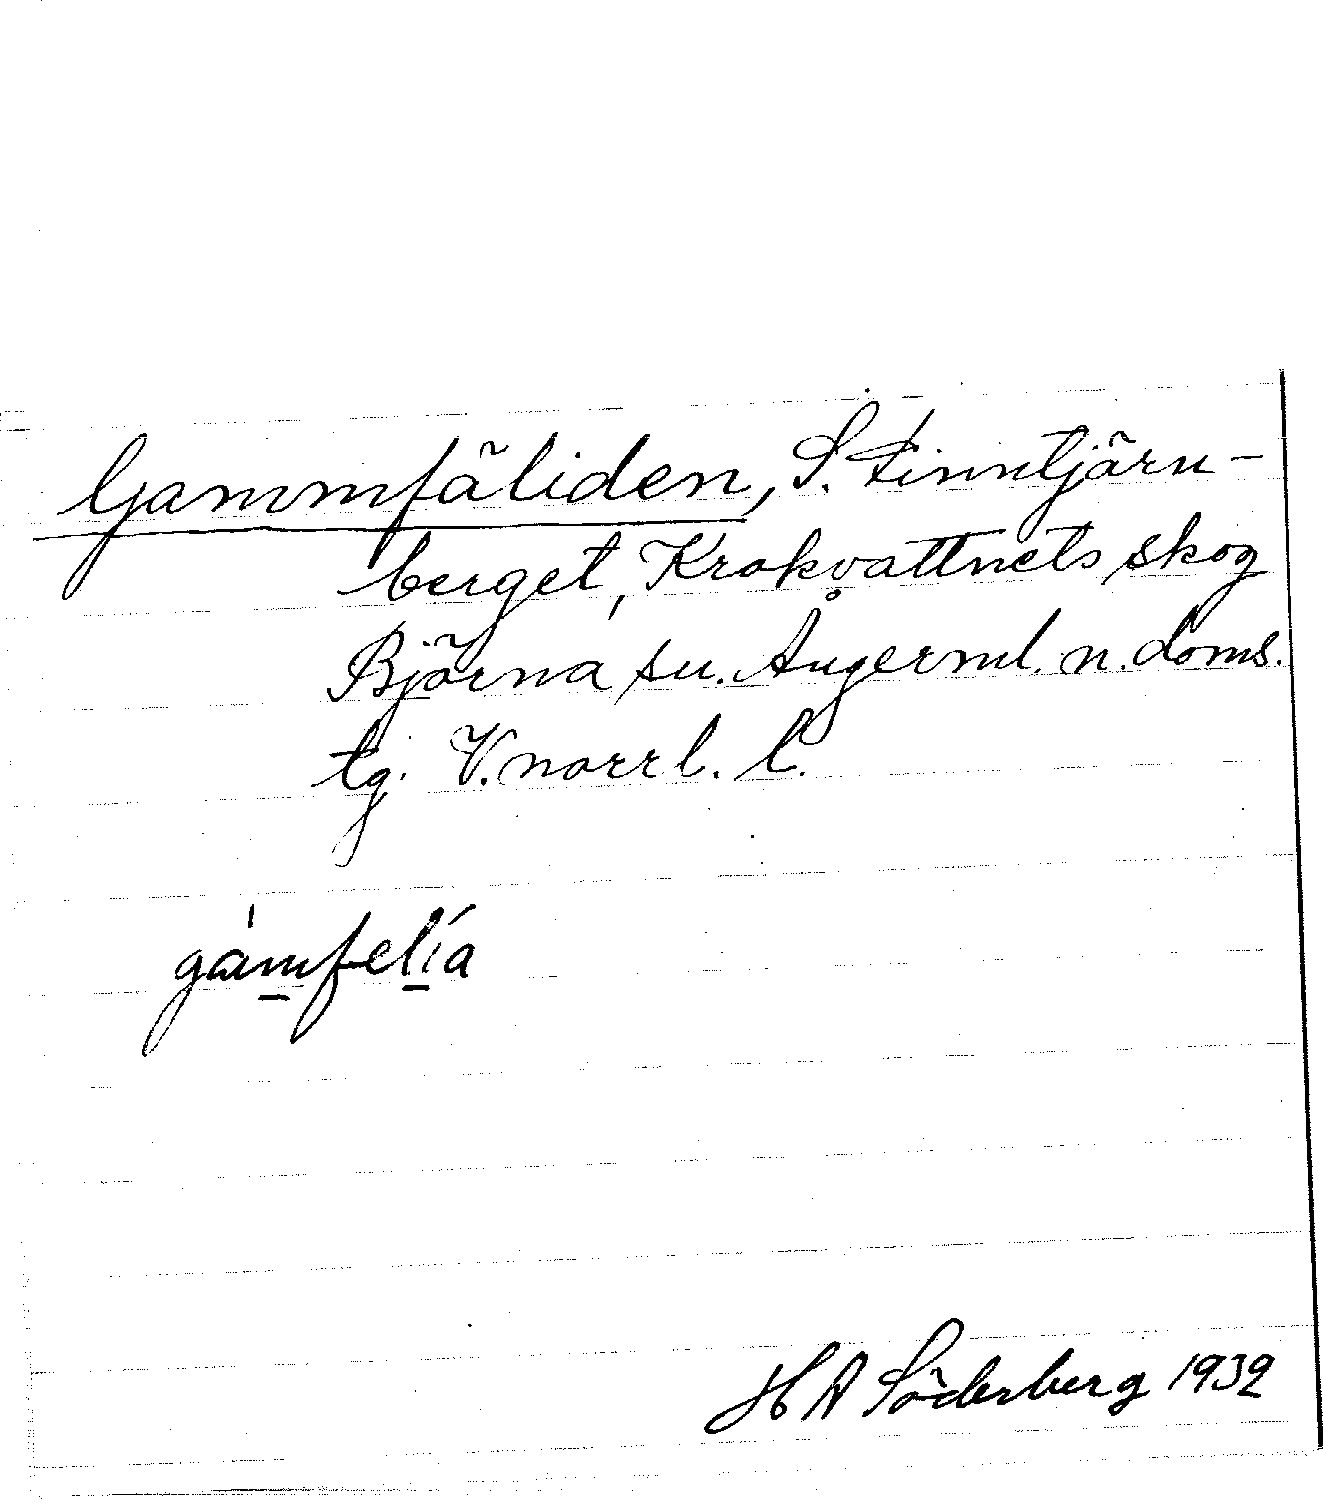 Gammfäliden, S. Finntjärn-
berget, Krokvattnets skog
Björna sn. Ångerml. n. doms.
tg. V.norrl. l.
gamfelía
H A Söderberg 1932